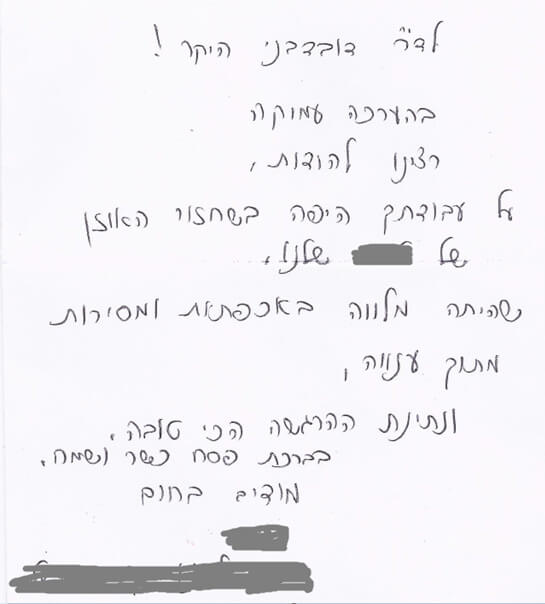 לד״ר דובדבני היקר!
בהערכה עמוקה
רצינו להודות,
על עבודתך היפה בשחזור האוזן
של שלנו,
שהיתה מלווה באכפתאת ומסירות
מתוך ענווה,
ונתינת ההרגשה הכי טובה.
בברכת פסח כשר ושמח.
מודים בחום